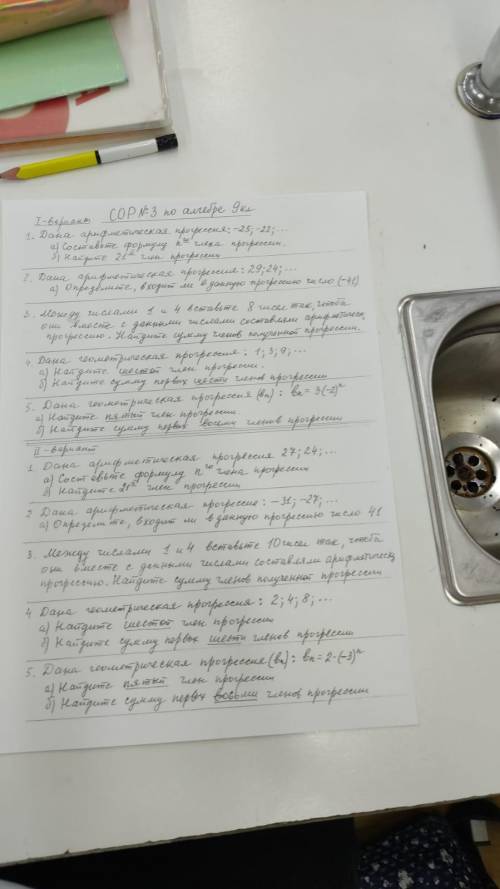 СОР №3 по алгебре 9кл
I-вариант
1. Дана арифметическая прогрессия: -25; -22; ...
а) Составьте формулу nго члена прогрессии.
б) Найдите 21й член прогрессии
2. Дана арифметическая прогрессия: 29; 24; ...
а) Определите, входит ли в данную прогрессию число (-41)
3. Между числами 1 и 4 вставьте 8 чисел так, чтоба
они вместе с данными числами составляли арифметическ.
прогрессию. Найдите сумму членов полученной прогрессии.
4. Дана геометрическая прогрессия: 1; 3; 9; ...
а) Найдите шестой член прогрессии.
б) Найдите сумму первых шести членов прогрессии
5. Дана геометрическая прогрессия (bn): bn = 3(-2)ⁿ
а) Найдите пятый член прогрессии.
б) Найдите сумму первых восьми членов прогрессии
II-вариант
1. Дана арифметическая прогрессия 27; 24; ...
а) Составьте формулу nго члена прогрессии
в) Найдите 21й член прогрессии
2 Дана арифметическая прогрессия: -31; -27; ...
а) Определите, входит ли в данную прогрессию число 41
3. Между числами 1 и 4 вставьте 10 чисел так, чтоба
они вместе с данными числами составляли арифметическ.
прогрессию. Найдите сумму членов полученной прогрессии
4 Дана геометрическая прогрессия: 2; 4; 8; ...
а) Найдите шестой член прогрессии
б) Найдите сумму первых шести членов прогрессии
5. Дана геометрическая прогрессия (bn): bn = 2·(-3)ⁿ
а) Найдите пятый член прогрессии
б) Найдите сумму первых восьми членов прогрессии